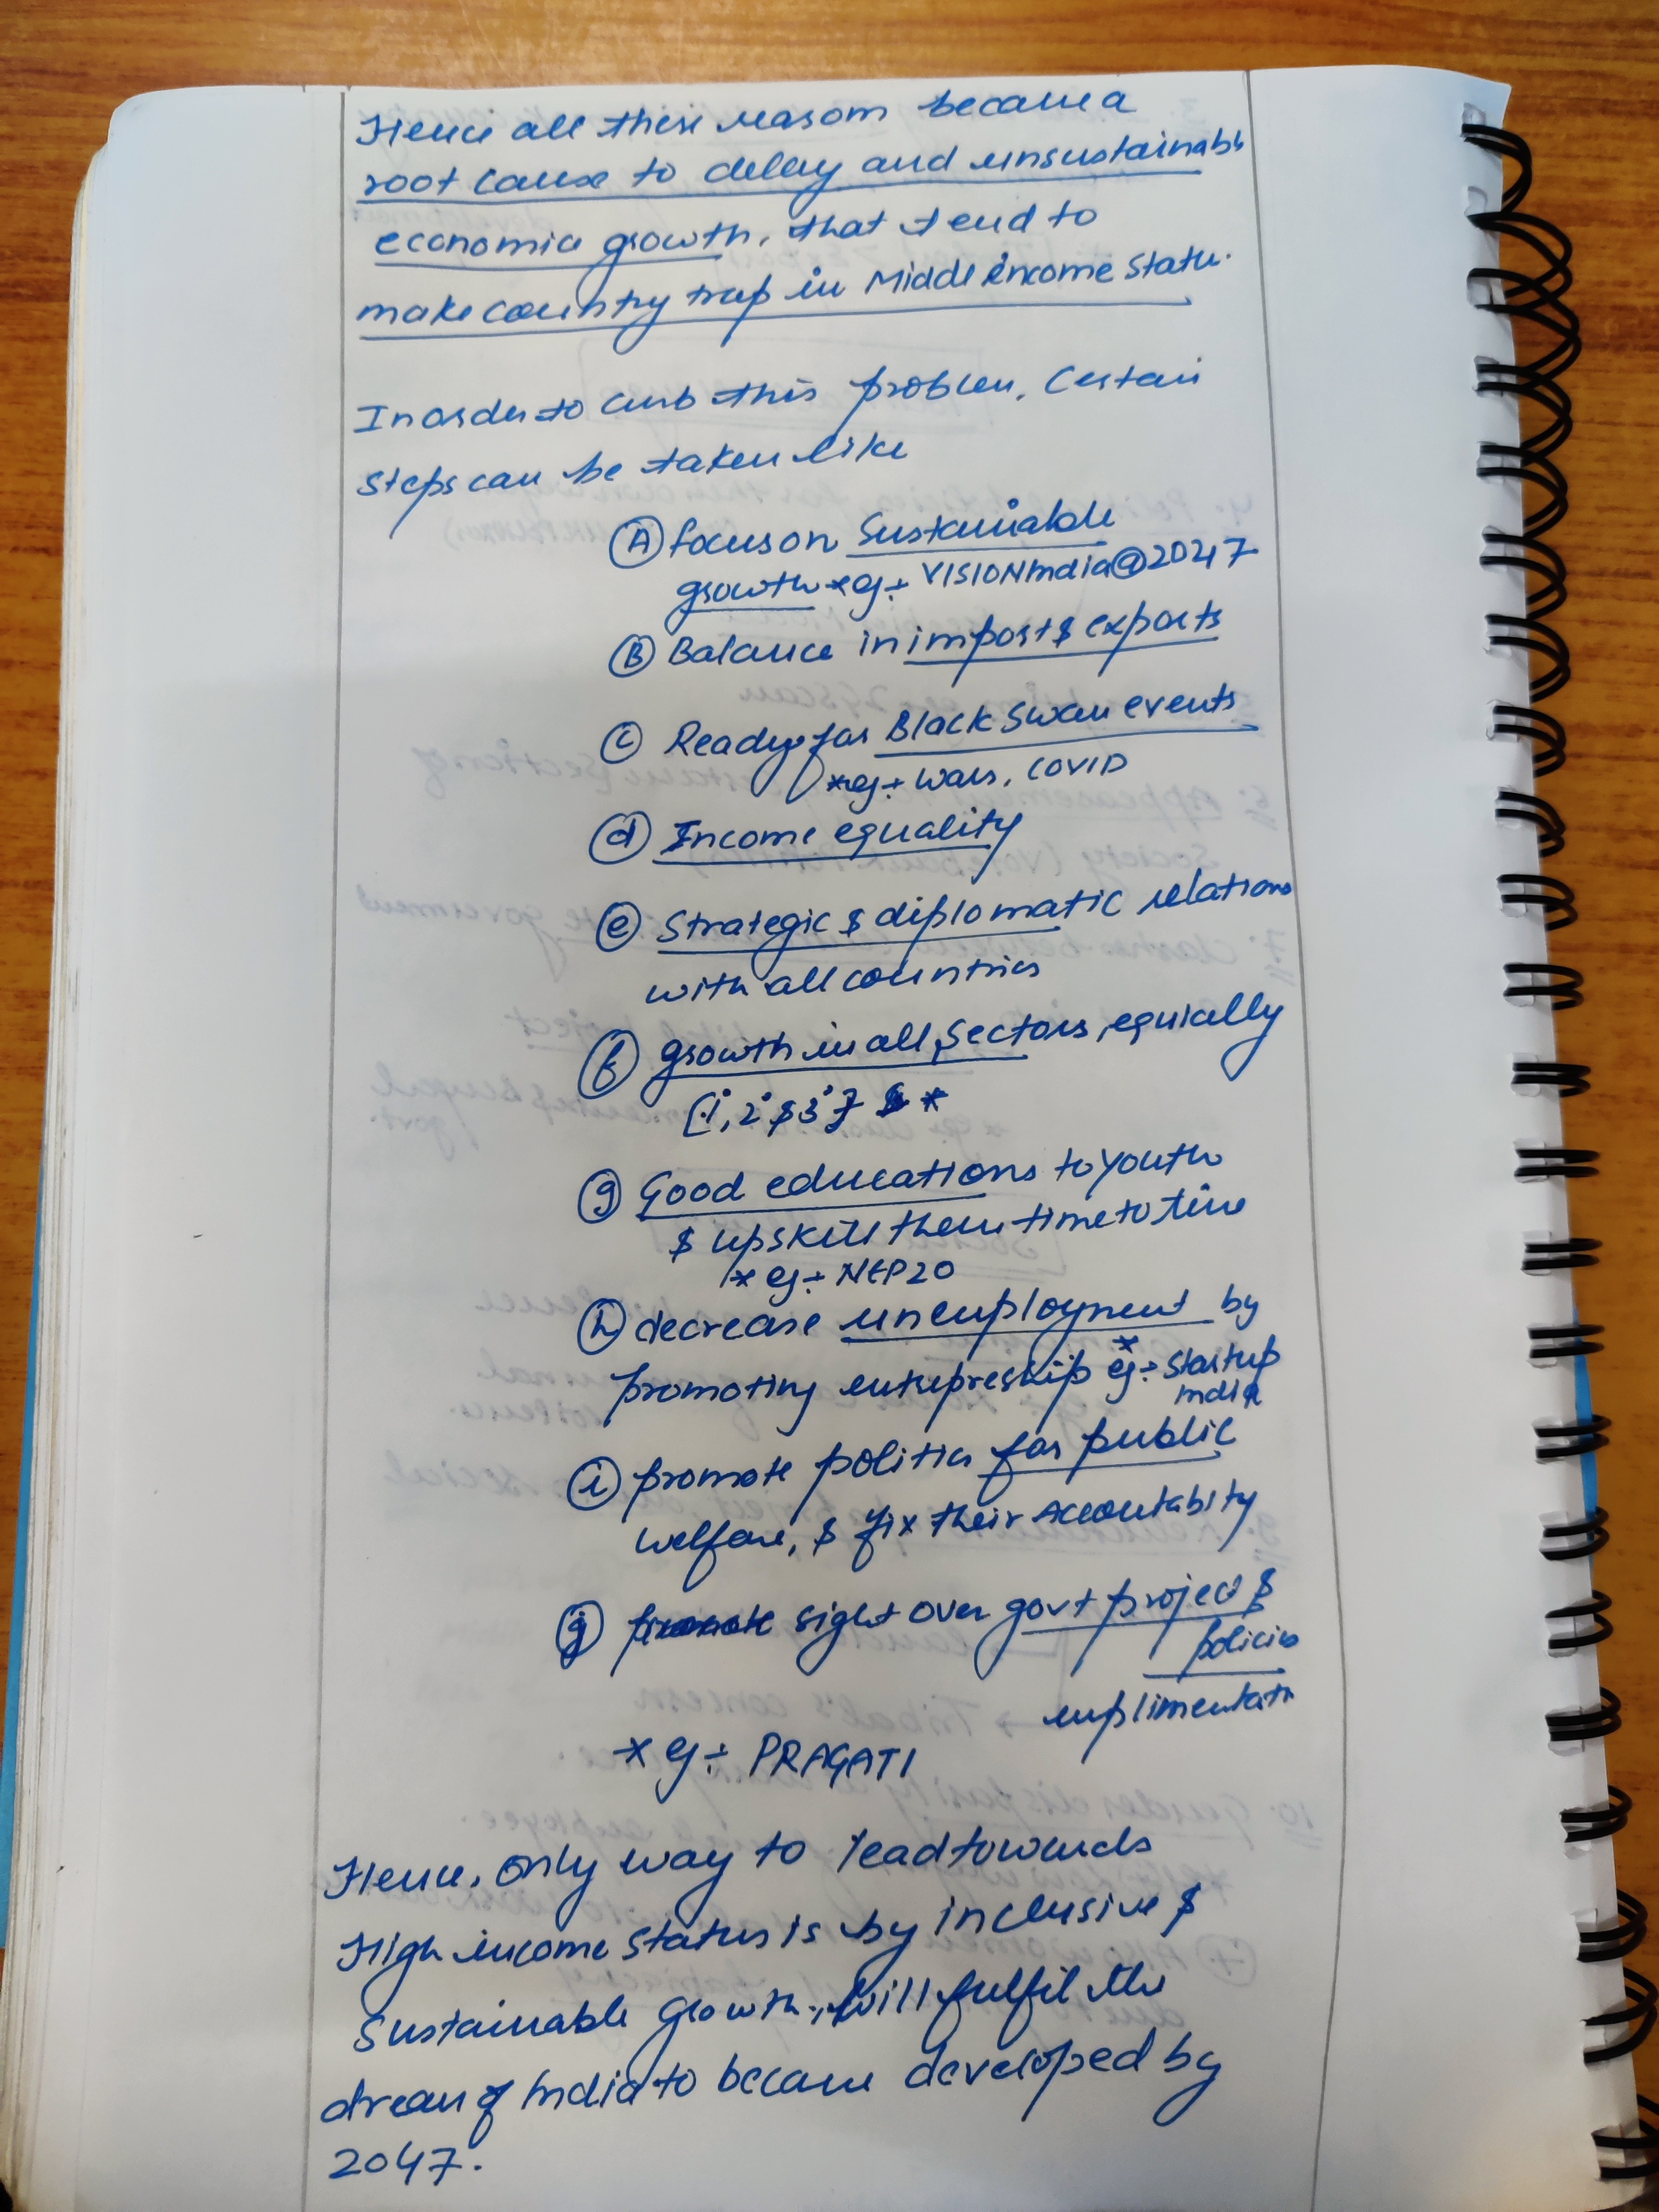 Hence all these reasons became a
root cause to delay and unsustainable
economic growth, that tend to
make country trap in Middle income Status.
In order to curb this problem, Certain
Steps can be taken like
(A) focus on Sustainable
growth * eg:- VISION India@2047
(B) Balance in import & exports
(C) Ready for Black Swan events
* eg:- Wars, COVID
(d) Income equality
(e) Strategic & diplomatic relations
with all countries
(f) growth in all Sectors, equially
[1°, 2° & 3°] *
(g) Good educations to youth
& upskill them time to time
* eg:- NEP20
(h) decrease unemployment by
promoting entrepreship * eg:- Startup
India
(i) promote politics for public
welfare, & fix their Accountabity
(j) sight over govt project &
policies
implimentatn
* eg:- PRAGATI
Hence, only way to lead towards
High income Status is by inclusive &
Sustainable Growth, will fulfil the
dream of India to became developed by
2047.